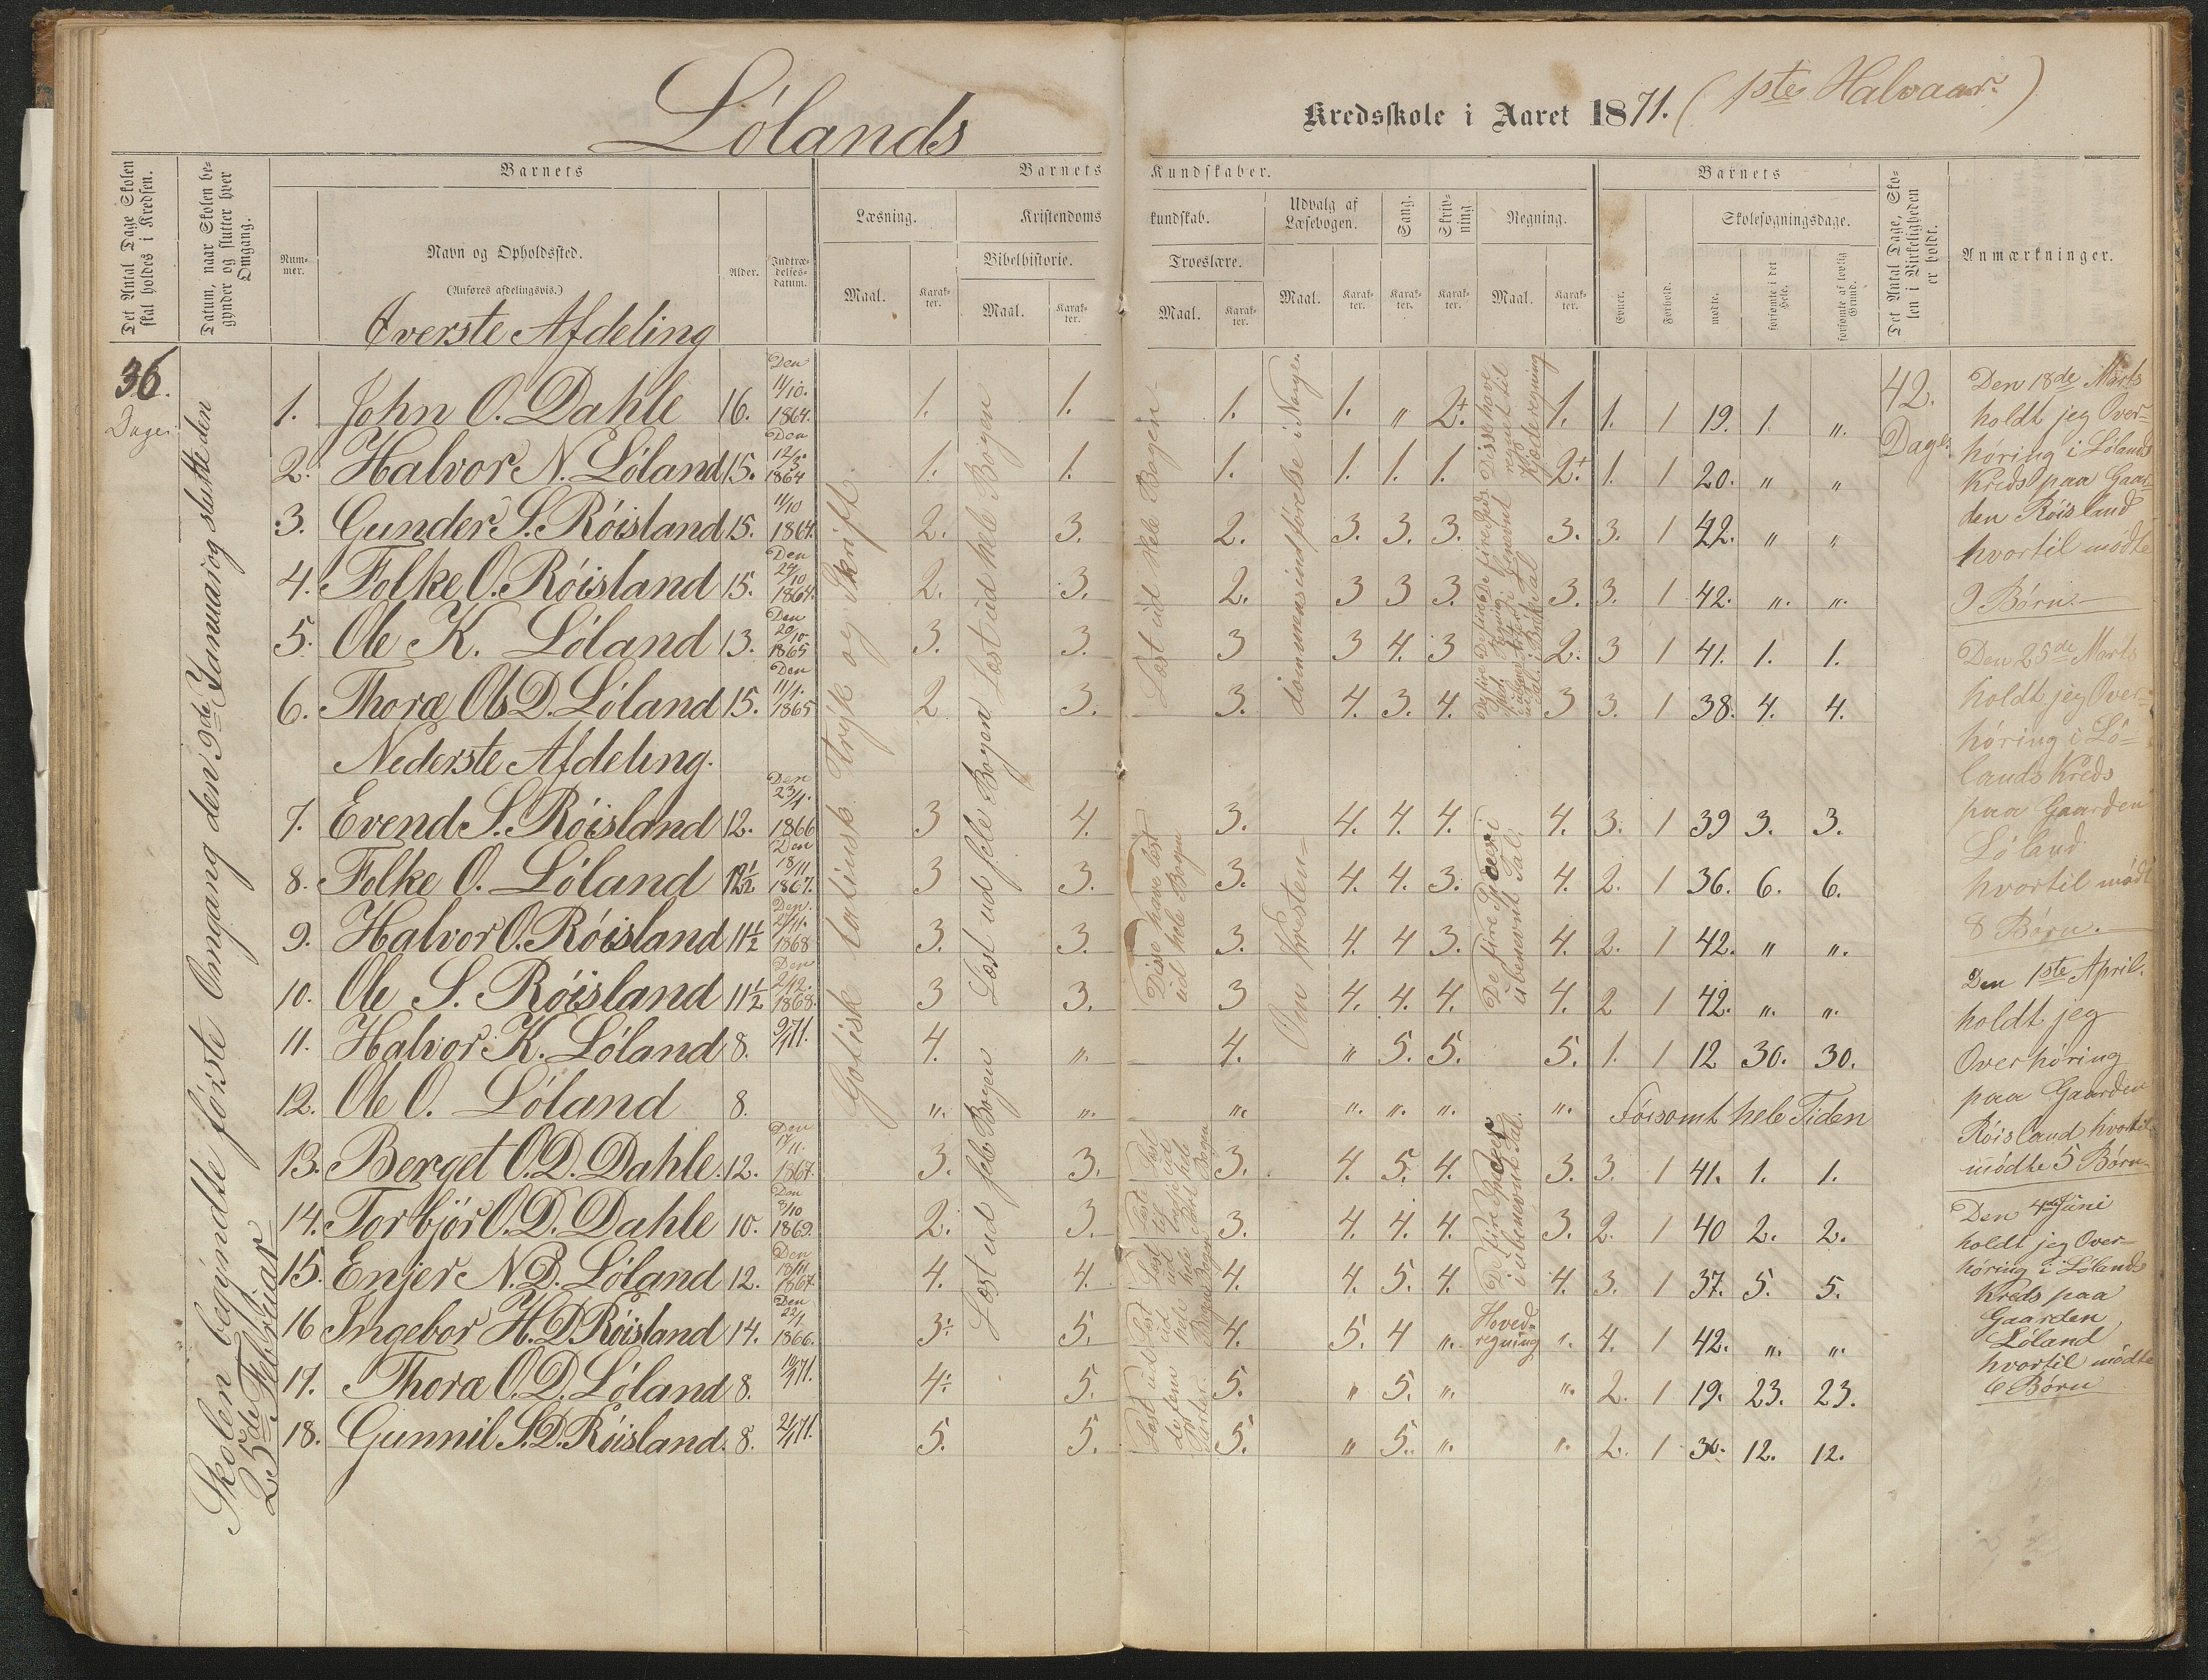 Lólands
Kredsskole i Aaret 1871. (1ste Halvaar)
Det Antal Dage Skolen skal holdes i Kredsen.
Datum, naar Skolen begynder og slutter hver Omgang.
Barnets
Num-mer.
Navn og Opholdssted.
(Anføres afdelingsvis.)
Alder.
Indtræ-delses-datum.
Barnets Kundskaber.
Læsning.
Maal.
Karak-ter.
Kristendomskundskab.
Bibelhistorie.
Maal.
Karak-ter.
Troeslære.
Maal.
Karak-ter.
Udvalg af Læsebogen.
Maal.
Karak-ter.
Sang.
Karak-ter.
Skriv-ning
Karak-ter.
Regning.
Maal.
Karak-ter.
Barnets
Evner.
Forhold.
Skolesøgningsdage.
mødte.
forsømte i det Hele.
forsømte af lovlig Grund.
Det Antal Dage, Sko-len i Virkeligheden er holdt.
Anmærkninger.
36.
Dage
Skolen begyndte förste Omgang den 9de Januar og sluttede den
25de Februar
Øverste Afdeling
1. John O. Dahle 16. Den 11/10. 1864. 1. 1. 1. 1. " 2+. 1. 1. 1 19. 1. "
2. Halvor N. Lóland 15. Den 12/5. 1864 1. 1. 1. 1. 1. 1. 2+. 1. 1 20. " "
3. Gunder S. Róisland 15. 11/10 1864. 2. 3. 2. 3. 3. 3. 3. 3. 1 42. " "
4. Folke O. Róisland 15. Den 24/10 1864. 2. 3. 2. 3 3 3. 3. 3. 1 42. " "
5. Ole K. Lóland 13. Den 20/10. 1865 3. 3. 3 3 4. 3 2. 3 1 41. 1. 1.
6. Thora Ols D. Lóland 15. Den 11/1. 1865 2 3. 3. 4. 3. 4. 3 3. 1 38. 4. 4.
Nederste Afdeling.
7. Evend S. Róisland 12. Den 23/4. 1866 3 4. 3. 4. 4. 4. 4. 3. 1 39 3. 3.
8. Folke O. Lóland 12½ Den 18/11 1867. 3 3. 3. 4. 4. 3. 4. 2. 1 36. 6. 6.
9. Halvor O. Róisland 11½ Den 27/11. 1868 3. 3. 3. 4. 4 3. 4. 2. 1 42. " "
10. Ole S. Róisland 11½ Den 2/12. 1868. 3 3. 3 4. 4. 4. 4. 2 1 42. " "
11. Halvor K. Lóland 8. 9/1 71. 4. " 4. " 5. 5. 5. 1. 1 12 30. 30.
12. Ole O. Lóland 8. " " " " " " " Forsömt hele Tiden
13. Berget O.D. Dahle 12. Den 17/11. 1867. 3. 3. 3. 4. 5. 4. 3. 3. 1 41. 1. 1.
14. Torbjör O.D. Dahle 10. Den 8/10 1869. 2. 3. 3. 4. 4. 4. 3. 2. 1 40 2. 2.
15. Enjer N.D. Lóland 12. Den 18/11 1867. 4. 4. 4. 4. 5. 4. 4. 3. 1 37. 5. 5.
16 Ingebor H.D. Róisland 14. Den 22/1 1866. 3÷ 5. 4. 5. 4 " " 4. 1 42. " "
17. Thora O.D. Lóland 8. 10/1 71. 4÷ 5. 5. " 5. " " 2. 1 19. 23. 23.
18. Gunnil S.D. Róisland. 8. 21/1 71. 5. 5. 5. " 5. " " 2. 1 30. 12. 12.
Gotisk latinsk Tryk og Skrift.
Læst ud hele Bogen
Læst ud hele Bogen
Læst ud hele Bogen
Læst ud hele Bogen
Disse have læst
ud hele Bogen
Læst ud
de fem
Parter.
Om Kristen-
dommens indförelse i Norgen
Disse have
regnet til
Kjæderegning
De fire Spesies i
ubenevnt Tal.
De fire Spesies
i ubenevnt Tal.
Hoved-
regning
42.
Dage.
Den 18de Marts
holdt jeg Over-
höring i Lölands
Kreds paa Gaar-
den Róisland
hvortil mödte
9 Börn.
Den 25de Marts
holdt jeg Over-
höring i Lö-
lands Kreds
paa Gaarden
Lóland
hvortil mödte
8 Börn.
Den 1ste April.
holdt jeg
Overhöring
paa Gaarden
Róisland hvortil
mödte 5 Börn.
Den 4de Juni
holdt jeg Over-
höring i Lölands
Kreds paa
Gaarden
Lóland
hvortil mödte
6 Börn